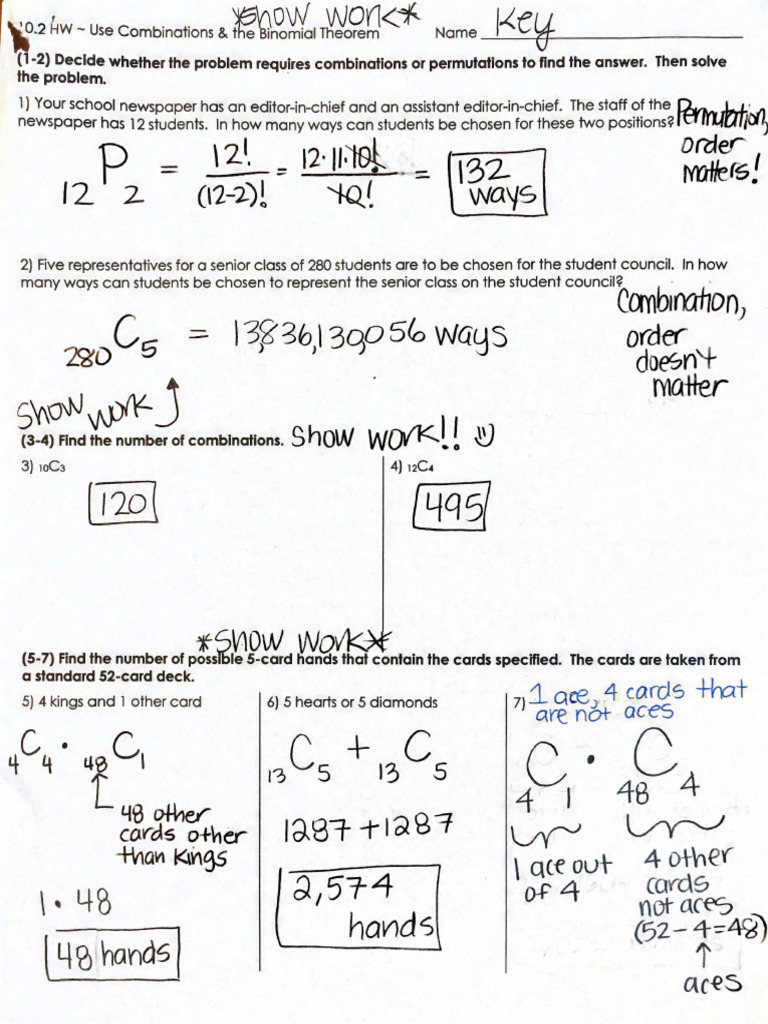 *Show Work*
10.2 HW ~ Use Combinations & the Binomial Theorem Name Key
(1-2) Decide whether the problem requires combinations or permutations to find the answer. Then solve
the problem.
1) Your school newspaper has an editor-in-chief and an assistant editor-in-chief. The staff of the
newspaper has 12 students. In how many ways can students be chosen for these two positions?
Permutation,
order
matters!
12P2 = 12!/(12-2)! = 12·11·10!/10! = 132 ways
2) Five representatives for a senior class of 280 students are to be chosen for the student council. In how
many ways can students be chosen to represent the senior class on the student council?
Combination,
order
doesn't
matter
280C5 = 13,836,130,056 ways
Show work
(3-4) Find the number of combinations. Show work!!
3) 10C3
120
4) 12C4
495
*Show Work*
(5-7) Find the number of possible 5-card hands that contain the cards specified. The cards are taken from
a standard 52-card deck.
5) 4 kings and 1 other card
4C4 · 48C1
48 other
cards other
than Kings
1 · 48
48 hands
6) 5 hearts or 5 diamonds
13C5 + 13C5
1287 + 1287
2,574
hands
7) 1 ace, 4 cards that
are not aces
4C1 · 48C4
1 ace out
of 4
4 other
cards
not aces
(52-4=48)
↑
aces